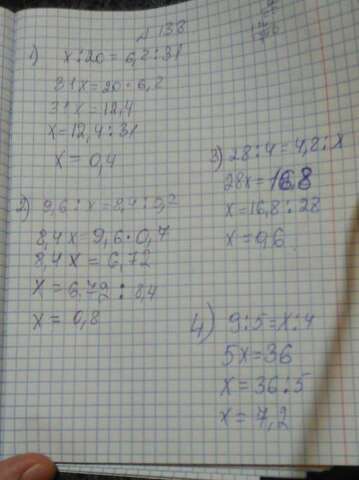 № 133
1) x:20=6,2:31
31x=20·6,2
31x=12,4
x=12,4:31
x=0,4
2) 9,6:x=8,4:0,7
8,4x=9,6·0,7
8,4x=6,72
x=6,72:8,4
x=0,8
3) 28:4=4,2:x
28x=16,8
x=16,8:28
x=0,6
4) 9:5=x:4
5x=36
x=36:5
x=7,2